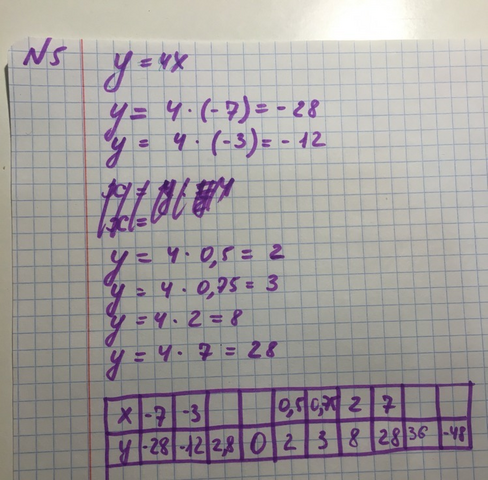 N5
y = 4x
y = 4 · (-7) = -28
y = 4 · (-3) = -12
x =
y = 4 · 0,5 = 2
y = 4 · 0,75 = 3
y = 4 · 2 = 8
y = 4 · 7 = 28
x -7 -3 0,5 0,75 2 7
y -28 -12 2,8 0 2 3 8 28 36 -48